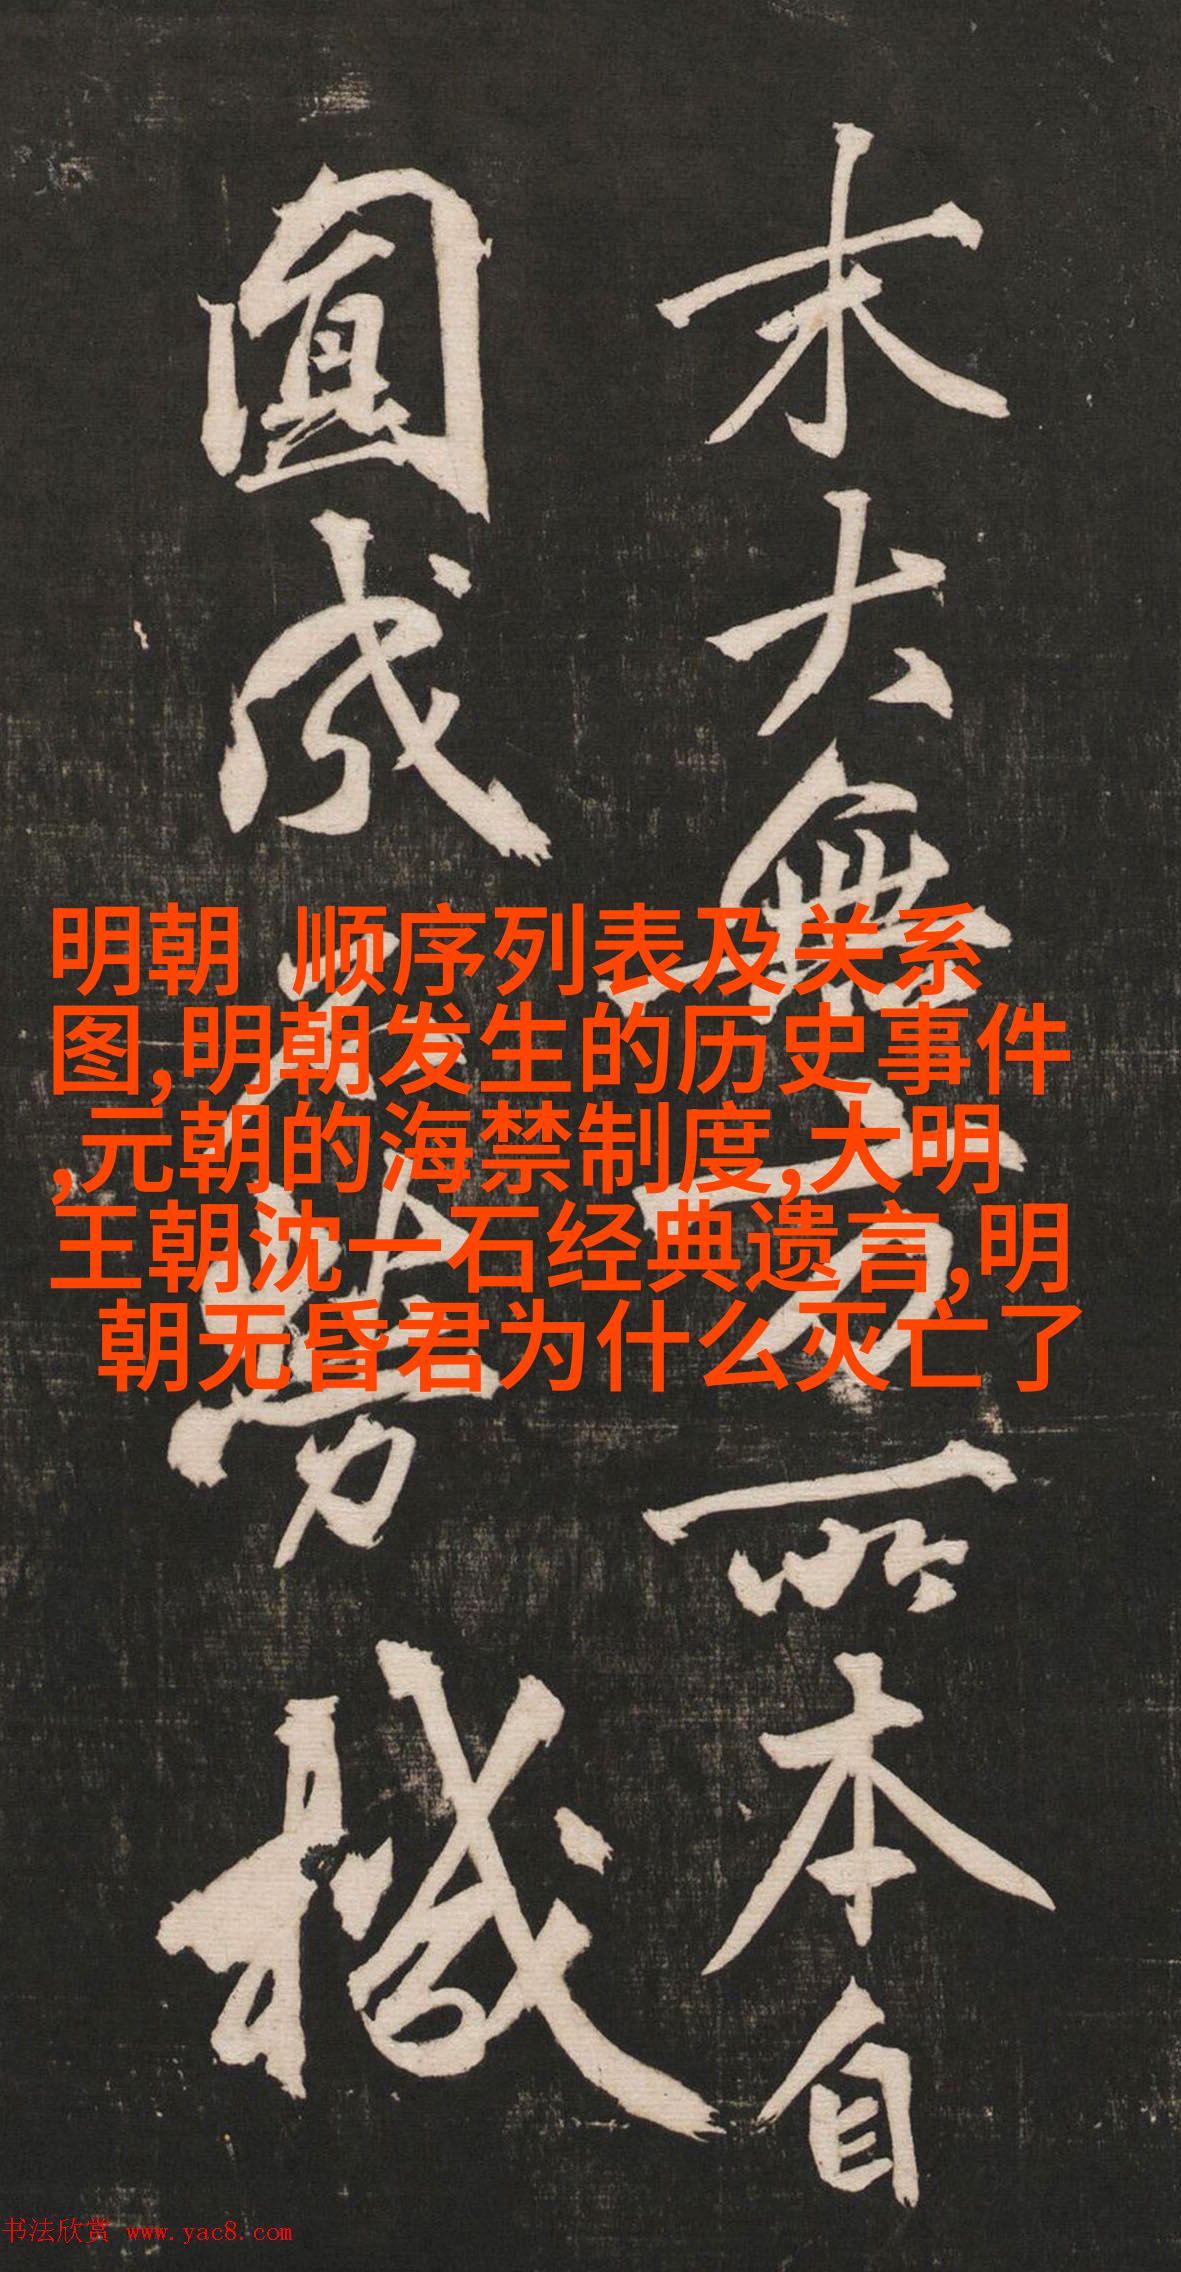 大無方所本自
圓成不勞機
明朝 顺序列表及关系
图,明朝发生的历史事件
,元朝的海禁制度,大明
王朝沈一石经典遗言,明
朝无昏君为什么灭亡了
书法欣赏 www.yac8.com